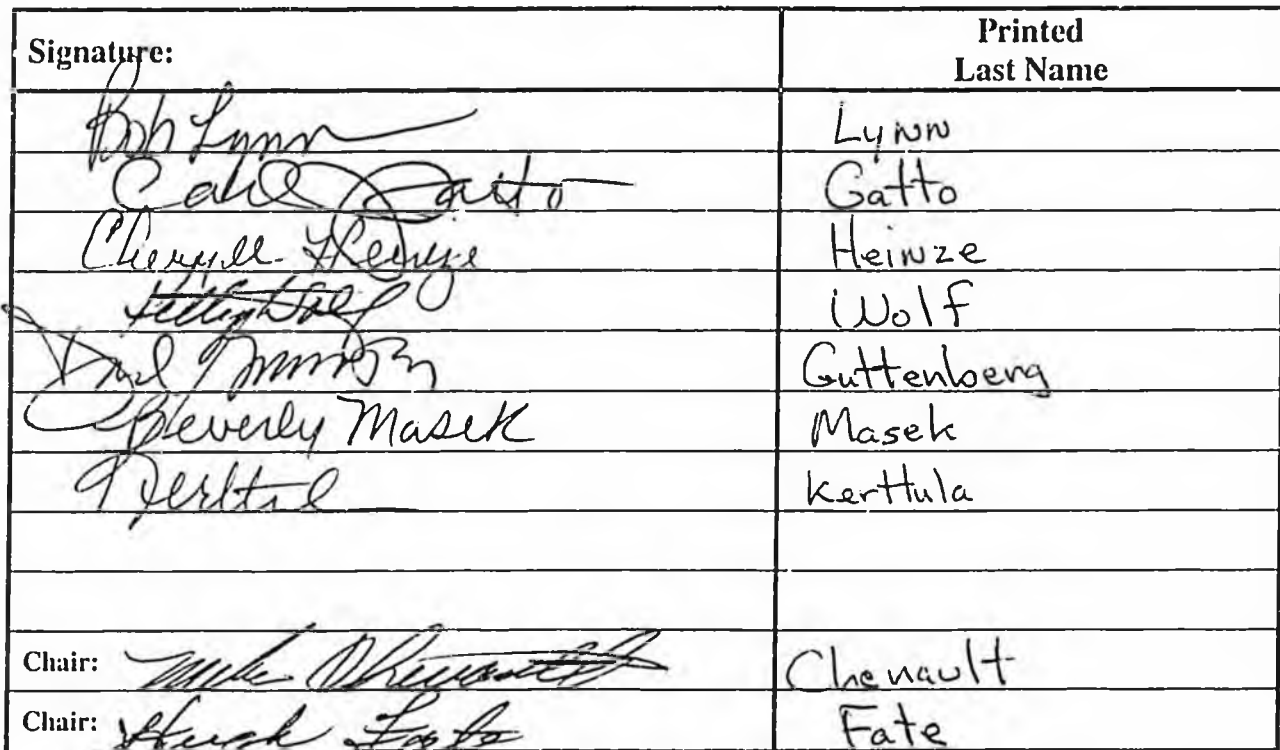 Signature: Printed
Last Name
Bob Lynn Lynn
Carl Gatto Gatto
Cheryll Heinze Heinze
Kelly Wolf Wolf
David Guttenberg Guttenberg
Beverly Masek Masek
Kerttula Kerttula
Chair: Mike Chenault Chenault
Chair: Hugh Fate Fate